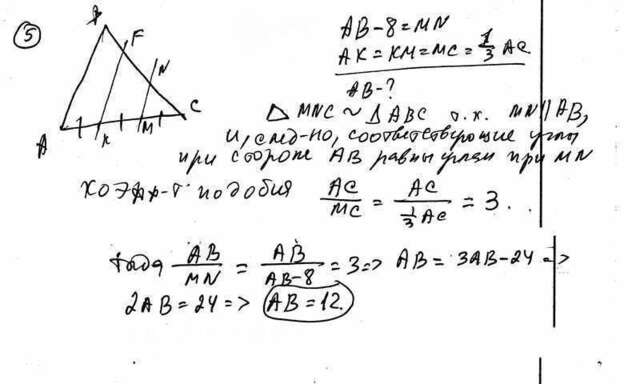 5
B
F
N
A
K
M
C
AB-8=MN
AK=KM=MC=1/3 AC
AB-?
△ MNC ~ △ ABC т.к. MN || AB,
и, след-но, соответствующие углы
при стороне AB равны углам при MN
коэфф-т подобия AC/MC = AC/(1/3 AC) = 3.
тогда AB/MN = AB/(AB-8) = 3 => AB = 3AB-24 =>
2AB = 24 => AB = 12.